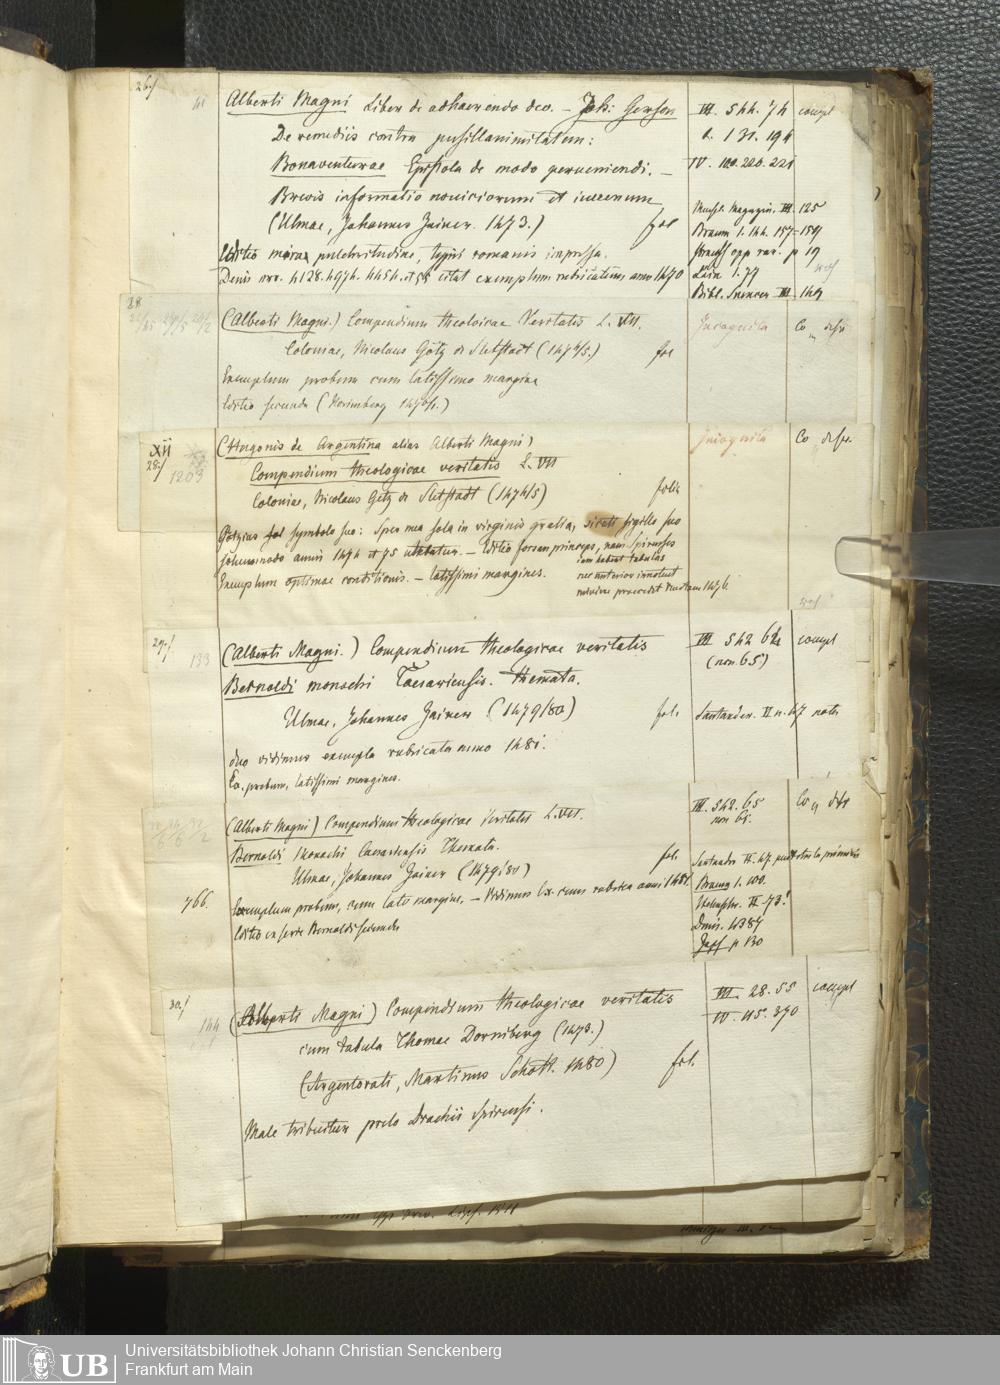 26/
41
Alberti Magni Liber de adhaerendo deo. – Joh: Gerson III. 544. 74 compl
De remediis contra pusillanimitatem: 1. 131. 194
Bonaventurae Epistola de modo perueniendi. – IV. 100. 220. 221
Brevis informatio noviciorum et iuvenum
(Ulmae, Johannes Zainer 1473.) fol
Magazin. III. 125
Braun 1. 144. 157-159
Editio mirae pulchritudine, typis romanis impressa. opp rar. p 19
Denis nro. 4128. 4976. citat exemplum rubricatum anno 1470
Bibl. Spencer III 149
28
(Alberti Magni.) Compendium theoloicae Veritatis L. VII. Incognita Co defe
Coloniae, Nicolaus Götz de Sletstadt (1474/5.) fol
Exemplum probum cum latissimo margine
Editio secunda (Norimberg 1470/1.)
XII
28/
1203
(Hugonis de Argentina alias Alberti Magni) Incognita Co defe.
Compendium theologicae veritatis L. VII
Coloniae, Nicolaus Götz de Sletstadt (1474/5) folio
Götzius symbolo suo: Spes mea sola in virginis gratia, sigillo suo
annis 1474 et 75 utebatur. – Editio forsan princeps, nam Spirensis
iam habent tabulas
Exemplum optimae conditionis. – latissimi margines. nec anterior innotuit
praecedit 1476.
29/
133
(Alberti Magni.) Compendium theologicae veritatis III 542 62 compl
(non 65)
Bernoldi monachi Caesariensis. themata.
Ulmae, Johannes Zainer (1479/80) fol. Santander. II n. 47 nota
duo vidimus exempla rubricata anno 1481.
Ex. probum, latissimi margines.
(Alberti Magni) Compendium theologicae Veritatis L. VII. III. 542. 65 Co defe
non 62.
Bernoldi Monachi Caesariensis Themata.
Ulmae, Johannes Zainer (1479/80) fol. Santander II. 47
766.
Exemplum probum, cum lato margine, – Vidimus Ex. cum rubrica anni 1481. Braun 1. 100.
II. 73!
Editio Bernoldi secunda Denis. 4387
p 130
30/
144
(Alberti Magni) Compendium theologicae veritatis III. 28. 55 compl
cum tabula Thomae Dorniberg (1473.) IV. 45. 370
(Argentorati, Martinus Schott. 1480) fol.
Male tribuitur prelo Drachii Spirensi.
UB
Universitätsbibliothek Johann Christian Senckenberg
Frankfurt am Main